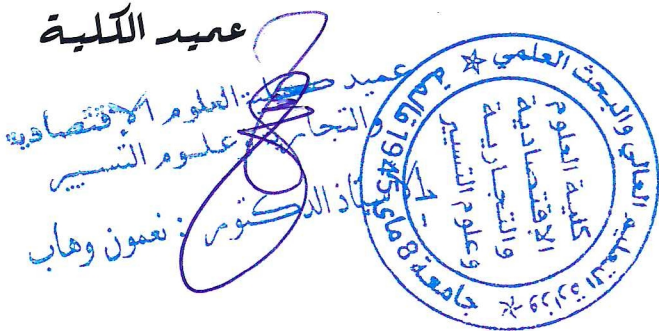 عميد الكلية
عميد كلية العلوم الإقتصادية
و التجارية وعلوم التسيير
الأستاذ الدكتور : نعمون وهاب
وزارة التعليم العالي والبحث العلمي
جامعة 8 ماي 1945 قالمة
كلية العلوم
الإقتصادية
والتجارية
وعلوم التسيير